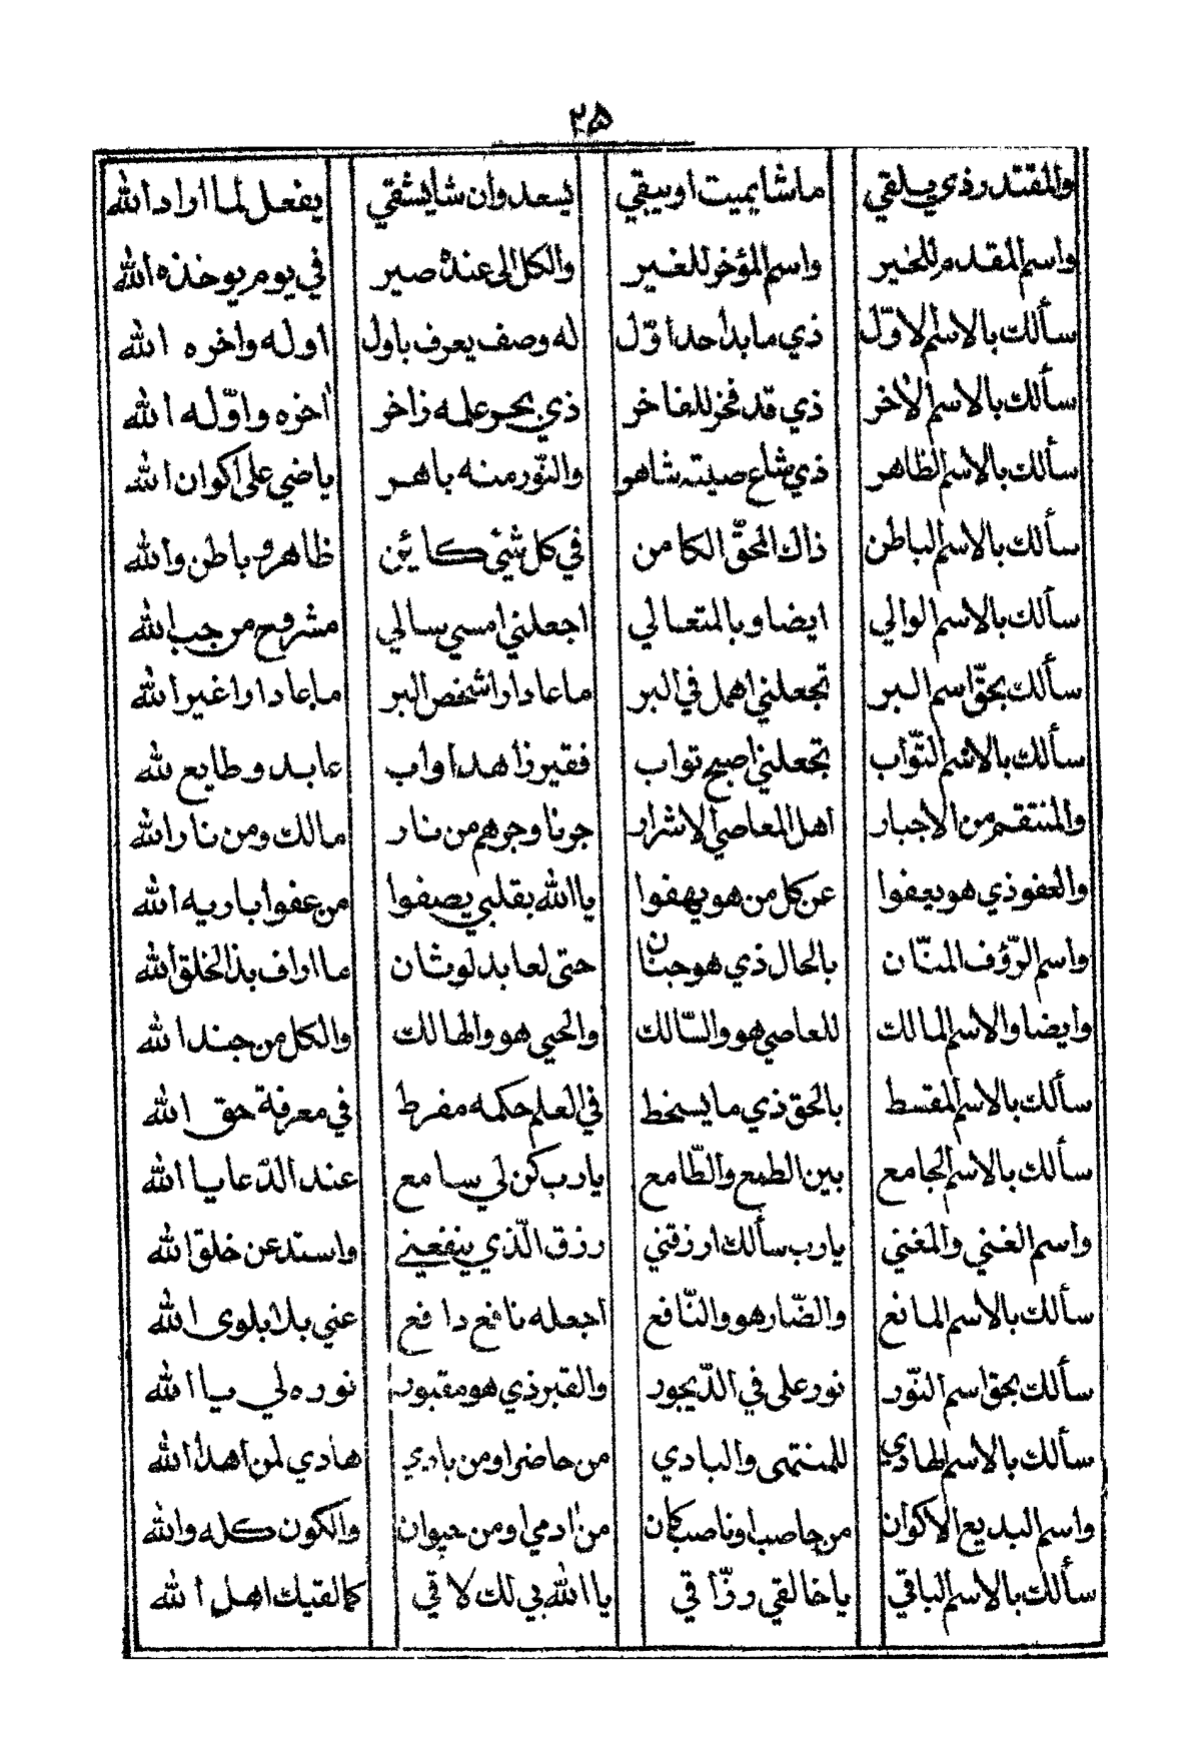 ٢٥
والمقتدر ذي يلقي ما شا يميت او يبقي يسعد وان شا يشقي يفعل لما اراد الله
واسم المقدم للخير واسم المؤخر للغير والكل الى عنده صير في يوم يوخذه الله
سألك بالاسم الاوّل ذي ما بدا حدا اوّل له وصف يعرف باول اوله واخره الله
سألك بالاسم الاخر ذي قد فخر للفاخر ذي بحر علمه زاخر اخره واوّله الله
سألك بالاسم الظاهر ذي شاع صيته شاهر والنّور منه باهر ياضي على اكوان الله
سألك بالاسم الباطن ذاك المحقّ الكامن في كل شيئ كائن ظاهر وباطن والله
سألك بالاسم الوالي ايضا وبالمتعالي اجعلني امسي سالي مشروح من جب الله
سألك بحقّ اسم البر تجعلني اهمل في البر ما عاد ارا شخص البر ما عاد ارا غير الله
سألك بالاسم التّواب تجعلني اصبح تواب فقير زاهد اواب عابد وطايع لله
والمنتقم من الاجبار اهل المعاصي الاشرار جرنا وجرهم من نار مالك ومن نار الله
والعفو ذي هو يعفوا عن كل من هو يهفوا يا الله بقلبي يصفوا من عفوا باريه الله
واسم الرّؤف المنّان بالحال ذي هو حنان حتى لعابد لوثان ما اراف بذ الخلق الله
وايضا والاسم المالك للعاصي هو والسّالك والحيي هو والهالك والكل من جند الله
سألك بالاسم المقسط بالحق ذي ما يسخط في العلم حكمه مفرط في معرفة حق الله
سألك بالاسم الجامع بين الطمع والطّامع يا رب كن لي سامع عند الدّعا يا الله
واسم الغني والمغني يا رب سألك ارزقني رزق الّذي ينفعني واستد عن خلق الله
سألك بالاسم المانع والضّار هو والنّافع اجعله نافع دافع عني بلا بلوى الله
سألك بحق اسم النّور نور على في الدّيجور والقبر ذي هو مقبور نوره لي يا الله
سألك بالاسم الهادي للمنتهى والبادي من حاضر او من بادي هادي لمن اهدا الله
واسم البديع الاكوان من حاصب او ناصب كان من ادمي او من حيوان والكون كله والله
سألك بالاسم الباقي يا خالقي ورزّاقي يا الله بي لك لاقي كما لقيك اهل الله